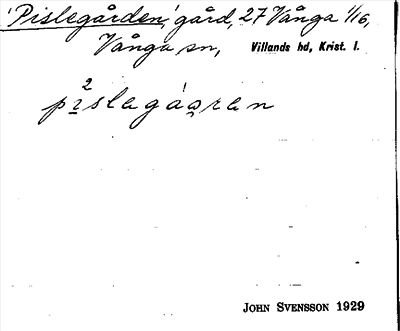 'Pislegården,' gård, 27 Vånga 1/16,
Vånga sn, Villands hd, Krist. l.
2
JOHN SVENSSON 1929